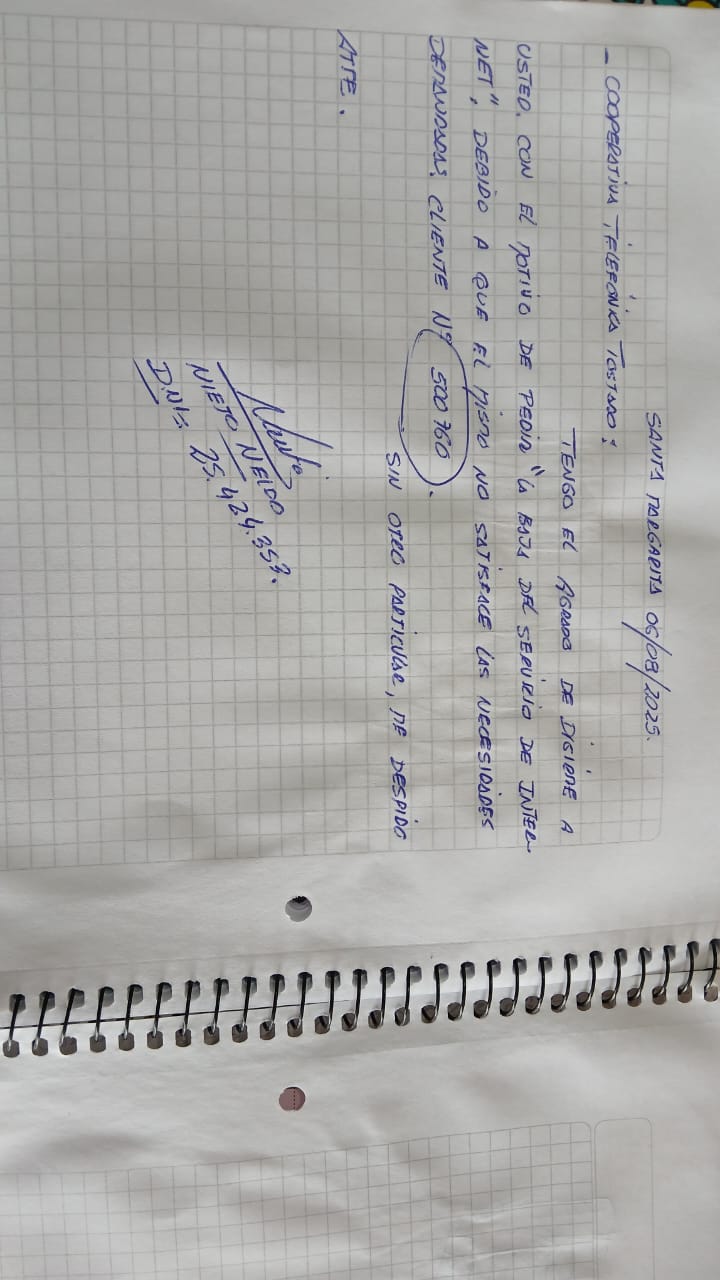 SANTA MARGARITA 06/08/2025.
- COOPERATIVA TELEFÓNICA TOSTADO:
TENGO EL AGRADO DE DIRIGIRME A
USTED, CON EL MOTIVO DE PEDIR "LA BAJA DEL SERVICIO DE INTER-
NET", DEBIDO A QUE EL MISMO NO SATISFACE LAS NECESIDADES
DEMANDADAS. CLIENTE Nº 500760.
SIN OTRO PARTICULAR, ME DESPIDO
ATTE.
NIETO NELDO
D.N.I. 25.424.353.